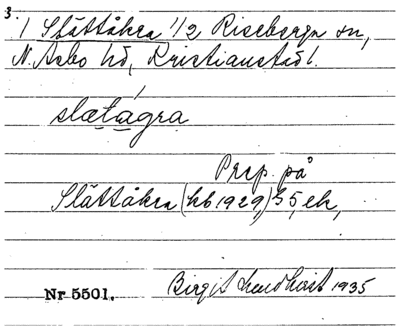 3.
1 Slättåkra 1/2 Riseberga sn,
N. Åsbo hd, Kristianstad l.
slætágra
Prep. på
Slättåkra (hb 1929) § 5, ek,
Nr 5501. Birgit Lundkvist 1935